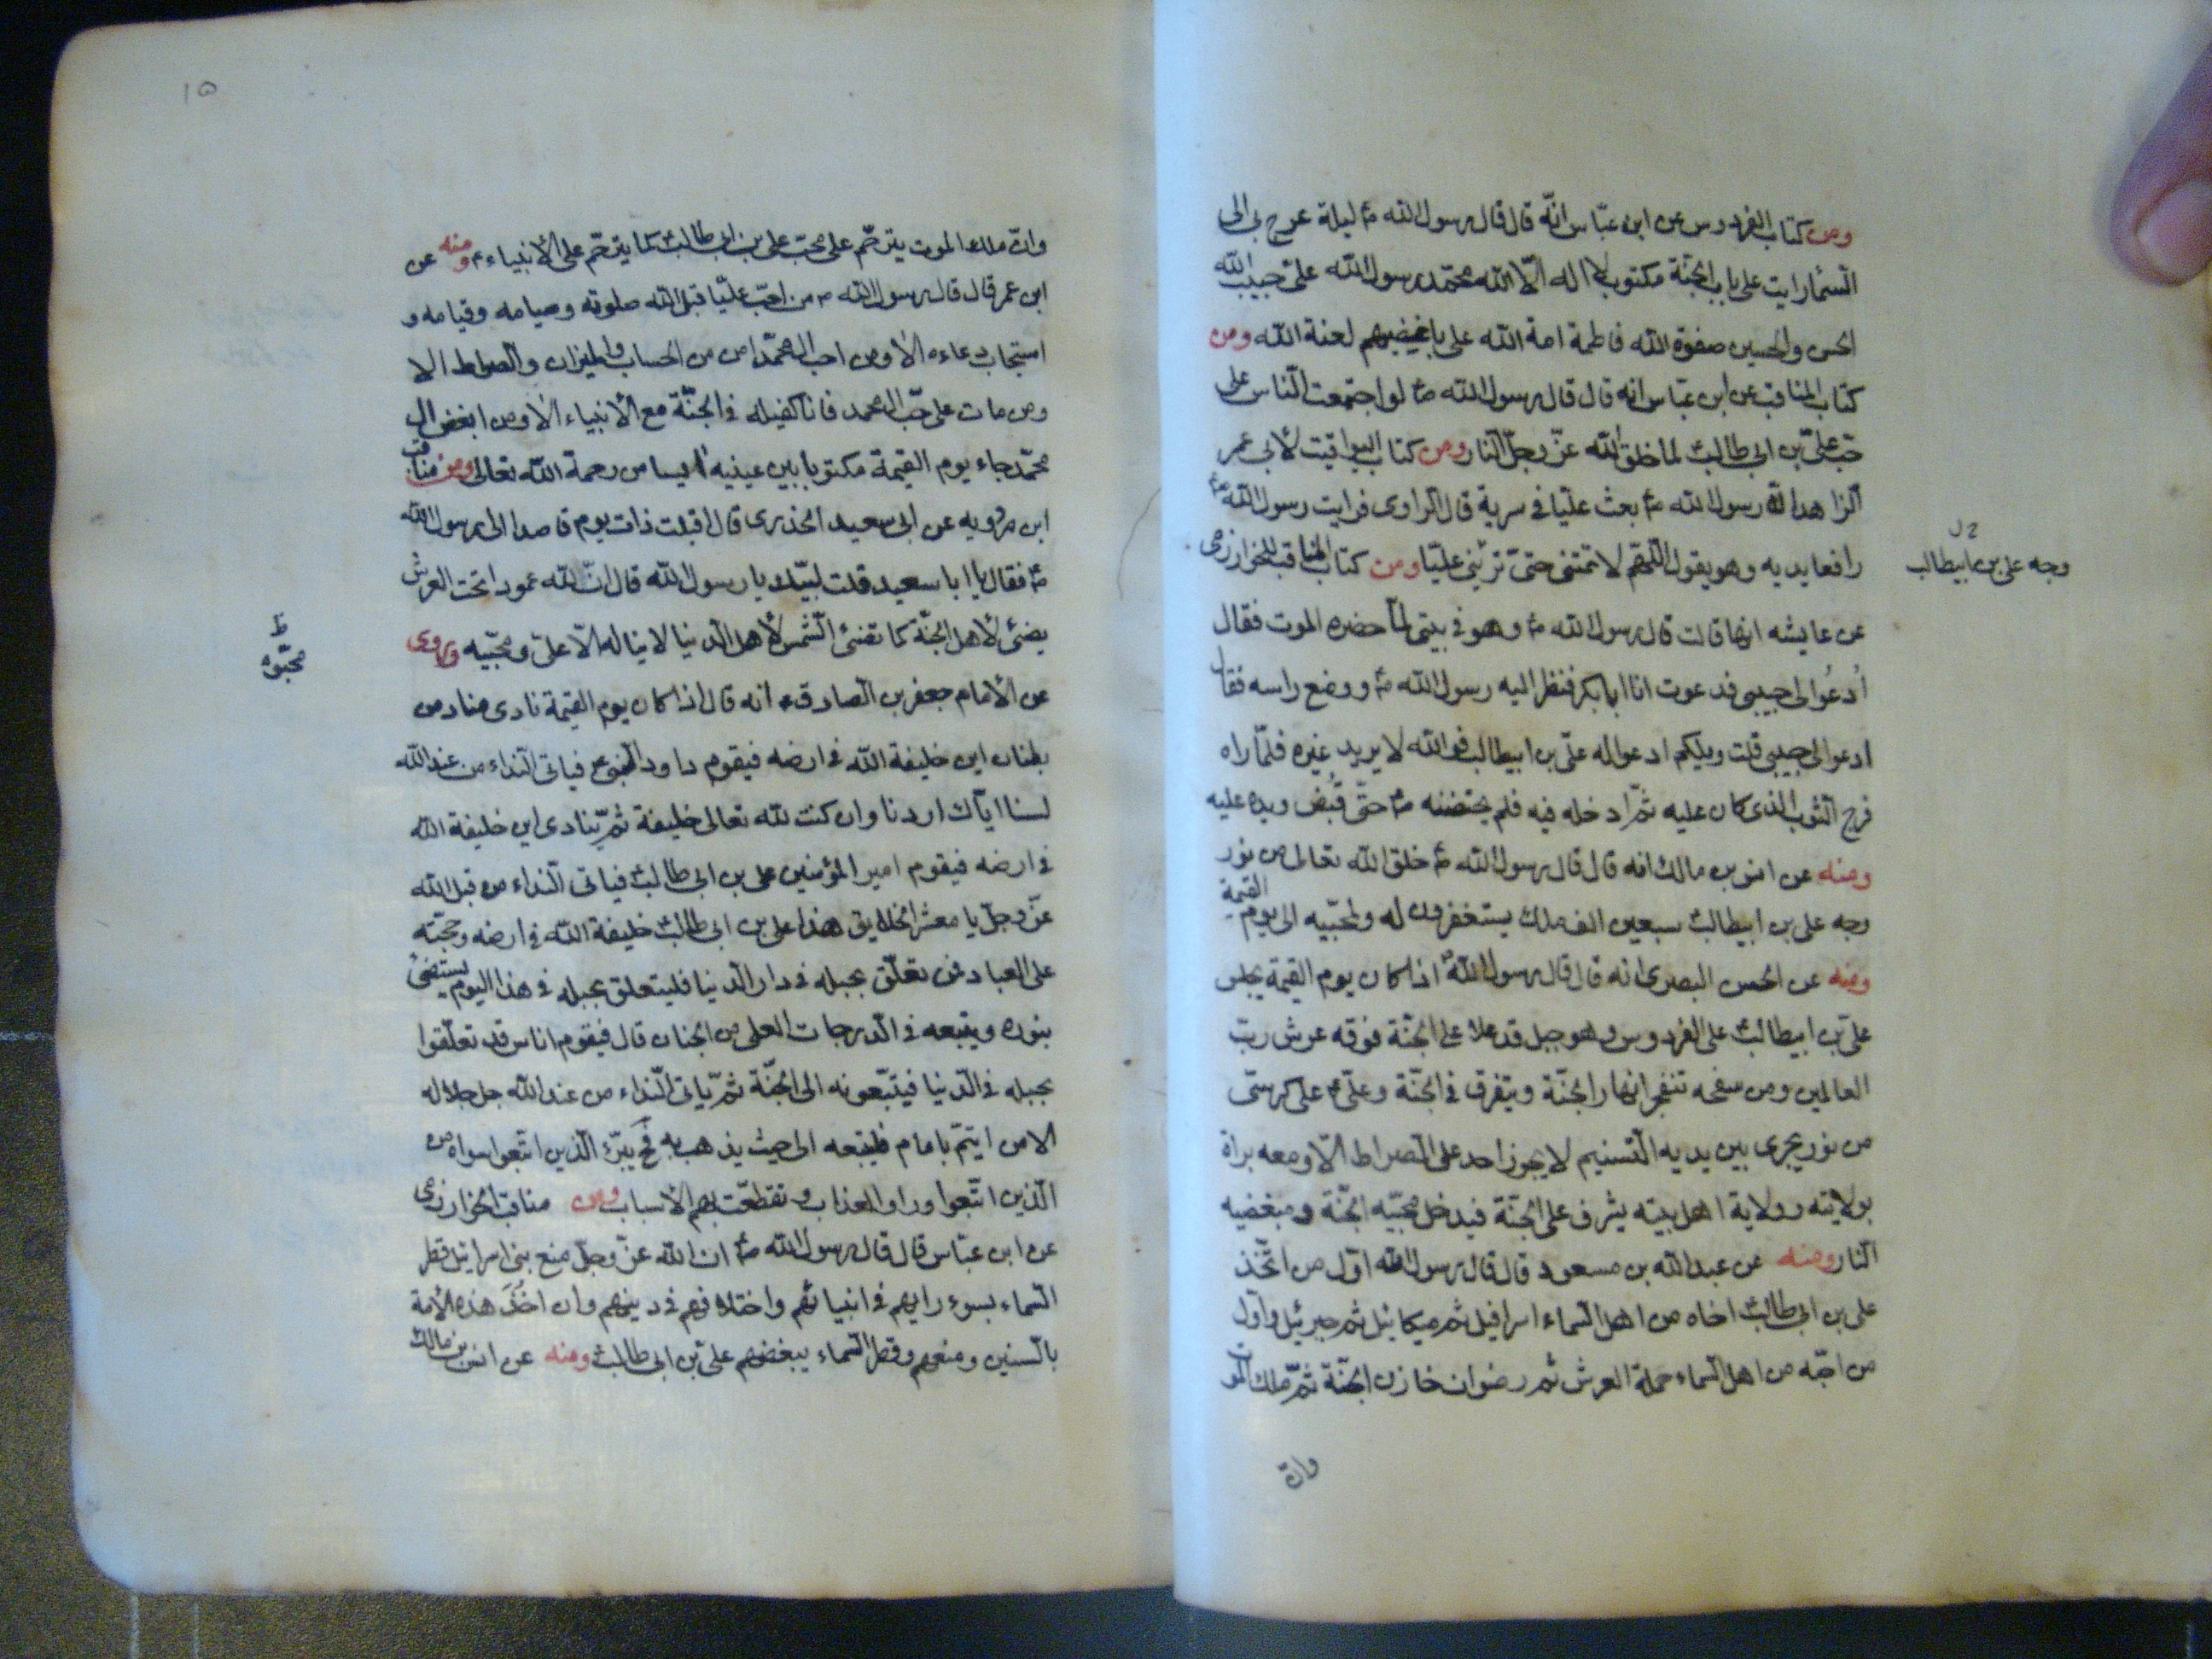 ومن كتاب الفردوس عن ابن عبّاس انّه قال قال رسول الله ص ليلة عرج بي الى
السّما رايت على باب الجنّة مكتوب لا اله الّا الله محمّد رسول الله علىّ حبيب الله
الحسن والحسين صفوة الله فاطمة امة الله على باغضيهم لعنة الله ومن
كتاب المناقب عن ابن عبّاس انه قال قال رسول الله ص لو اجتمعت النّاس على
حبّ علىّ بن ابى طالب لما خلق الله عزّ وجلّ النار ومن كتاب اليواقيت لأبى عمر
الزاهد انّ رسول الله ص بعث عليّا فى سرية قال الراوى فرايت رسول الله ص
رافعا يديه وهو يقول اللّهمّ لا تمتنى حتىّ ترينى عليّا ومن كتاب المناقب للخوارزمى
وجه على بن ابيطالب
عن عايشه انها قالت قال رسول الله ص وهو فى بيتى لمّا حضره الموت فقال
اُدعُوا لى حبيبى فدعوت انا ابا بكر فنظر اليه رسول الله ص ووضع راسه فقال
ادعوا لى حبيبى قلت ويلكم ادعوا له علىّ بن ابيطالب فوالله لا يريد غيره فلمّا راه
فرج الثوب الذى كان عليه ثمّ ادخله فيه فلم يحتضنه ص حتّى قُبض ويده عليه
ومنه عن انس بن مالك انه قال قال رسول الله ص خلق الله تعالى من نور
وجه على بن ابيطالب سبعين الف ملك يستغفرون له ولمحبّيه الى يوم القيمة
ومنه عن الحسن البصرى انه قال قال رسول الله ص اذا كان يوم القيمة يجلس
علىّ بن ابيطالب على الفردوس وهو جبل قد علا على الجنّة فوقه عرش ربّ
العالمين ومن سفحه تنفجر انهار الجنّة ويتفرق فى الجنّة وعلىّ ع على كرسىّ
من نور يجرى بين يديه التسنيم لا يجوز احد على الصراط الّا ومعه براة
بولايته وولاية اهل بيته يشرف على الجنّة فيدخل محبّيه الجنّة ومبغضيه
النار ومنه عن عبد الله بن مسعود قال قال رسول الله اوّل من اتّخذ
على بن ابى طالب اخاه من اهل السّماء اسرافيل ثم ميكائيل ثم جبرئيل واوّل
من احبّه من اهل السّماء حملة العرش ثم رضوان خازن الجنّة ثمّ ملك الموت
وانّ
١٥
وانّ ملك الموت يترحّم على محبّ على بن ابى طالب كما يترحّم على الأنبياء ع ومنه عن
ابن عمر قال قال رسول الله ص من احبّ عليّا قبل الله صلوته وصيامه وقيامه و
استجاب دعاءه الا ومن احب ال محمّد امن من الحساب والميزان والصراط الا
ومن مات على حبّ ال محمد فانا كفيله فى الجنّة مع الأنبياء الا ومن ابغض ال
محمّد جاء يوم القيمة مكتوبا بين عينيه ايسا من رحمة الله تعالى ومن مناقب
ابن مردويه عن ابى سعيد الخدرى قال اقبلت ذات يوم قاصدا الى رسول الله
ص فقال يا ابا سعيد قلت لبيّك يا رسول الله قال انّ لله عمودا تحت العرش
يضئ لأهل الجنّة كما تضئ الشّمس لأهل الدنيا لا يناله الّا علىّ ومحبّيه وروى
ظ
محبّوه
عن الأمام جعفر بن الصادق ع انه قال اذا كان يوم القيمة نادى مناد من
بطنان اين خليفة الله فى ارضه فيقوم داود النبى ع فياتى النداء من عند الله
لسنا ايّاك اردنا وان كنت لله تعالى خليفة ثمّ ينادى اين خليفة الله
فى ارضه فيقوم امير المؤمنين على بن ابى طالب فياتى النداء من قبل الله
عزّ وجلّ يا معشر الخلايق هذا على بن ابى طالب خليفة الله فى ارضه وحجّته
على العباد فمن تعلّق بحبله فى دار الدنيا فليتعلق بحبله فى هذا اليوم يستضئ
بنوره ويتبعه فى الدرجات العلى من الجنان قال فيقوم اناس قد تعلّقوا
بحبله فى الدنيا فيتبّعونه الى الجنّة ثمّ ياتى النّداء من عند الله جل جلاله
الا من ايتمّ بامام فليتبعه الى حيث يذهب به فح يتبرّء الذين اتّبعوا سواه من
الذين اتّبعوا وراوا العذاب وتقطعت بهم الأسباب ومن مناقب الخوارزمى
عن ابن عبّاس قال قال رسول الله ص ان الله عزّ وجلّ منع بنى اسرائيل قطر
السّماء بسوء رايهم فى انبيائهم واختلافهم فى دينهم وان اخذ هذه الأمة
بالسنين ومنعهم قطر السّماء ببغضهم علىّ بن ابى طالب ومنه عن انس بن مالك